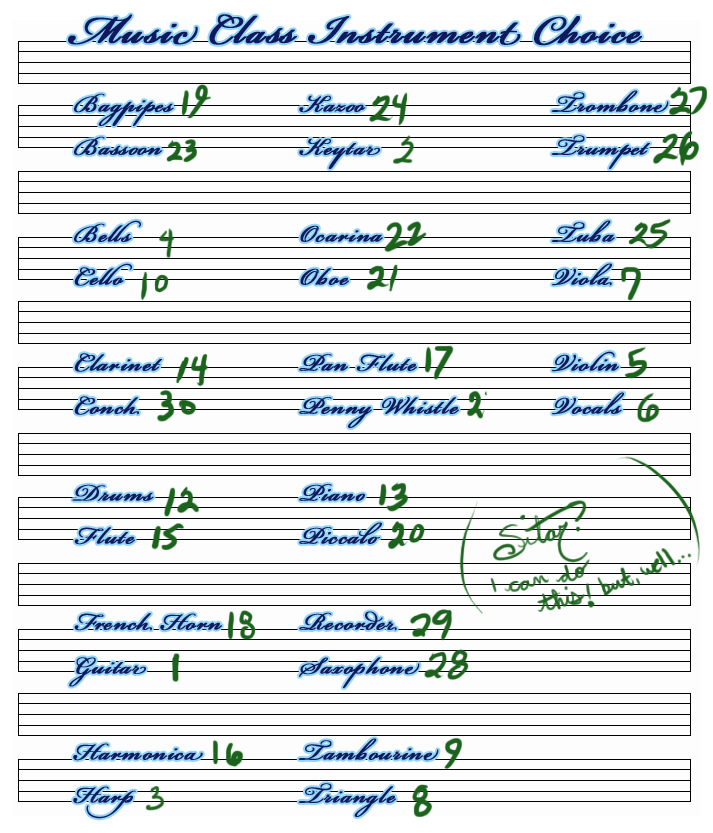 Music Class Instrument Choice
Bagpipes 19 Kazoo 24 Trombone 27
Bassoon 23 Keytar 2 Trumpet 26
Bells 4 Ocarina 22 Tuba 25
Cello 10 Oboe 21 Viola 7
Clarinet 14 Pan Flute 17 Violin 5
Conch 30 Penny Whistle 2 Vocals 6
Drums 12 Piano 13
Flute 15 Piccalo 20
Sitar?
I can do
this! but, well...
French Horn 18 Recorder 29
Guitar 1 Saxophone 28
Harmonica 16 Tambourine 9
Harp 3 Triangle 8